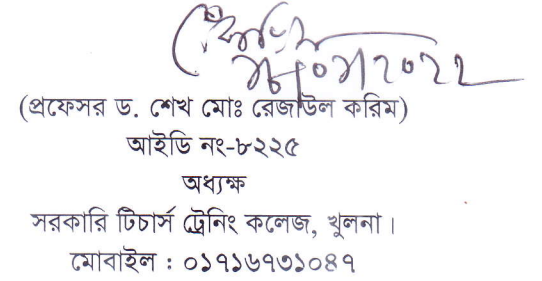 (প্রফেসর ড. শেখ মোঃ রেজাউল করিম)
আইডি নং-৮২২৫
অধ্যক্ষ
সরকারি টিচার্স ট্রেনিং কলেজ, খুলনা।
মোবাইল : ০১৭১৬৭৩১০৪৭